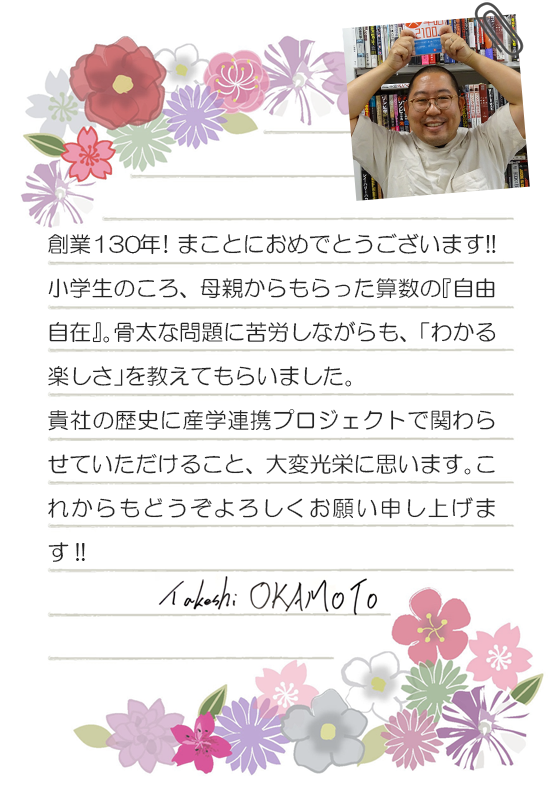 創業130年! まことにおめでとうございます!!
小学生のころ、母親からもらった算数の『自由
自在』。骨太な問題に苦労しながらも、「わかる
楽しさ」を教えてもらいました。
貴社の歴史に産学連携プロジェクトで関わら
せていただけること、大変光栄に思います。こ
れからもどうぞよろしくお願い申し上げま
す!!
Takeshi OKAMOTO